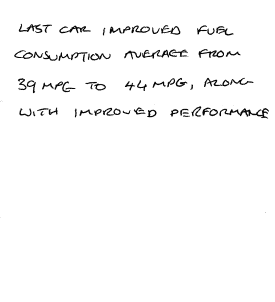 LAST CAR IMPROVED FUEL
CONSUMPTION AVERAGE FROM
39 MPG TO 44 MPG, ALONG
WITH IMPROVED PERFORMANCE